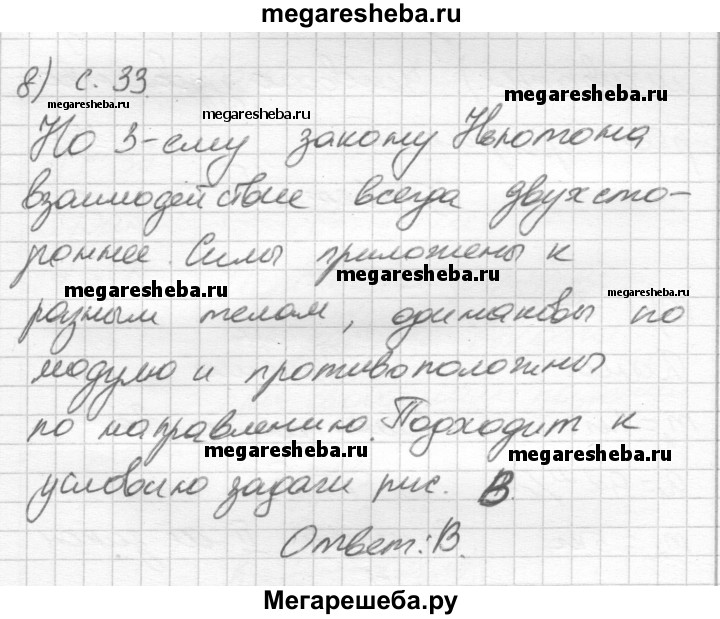 megaresheba.ru
8) с. 33
megaresheba.ru
megaresheba.ru
megaresheba.ru
По 3-ему закону Ньютона
взаимодействие всегда двухсто-
роннее. Силы приложены к
megaresheba.ru
megaresheba.ru
megaresheba.ru
разным телам, одинаковы по
модулю и противоположны
по направлению. Подходит к
megaresheba.ru
megaresheba.ru
условию задачи рис. В.
Ответ: В.
Мегарешеба.ру